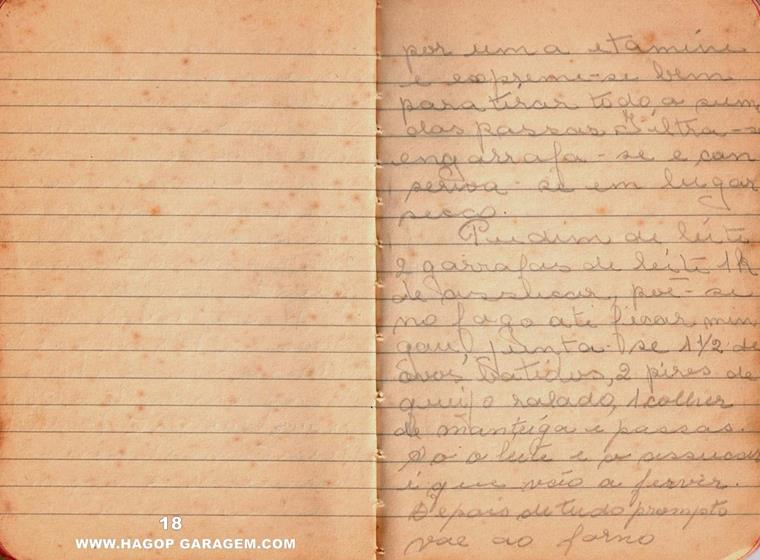 18
WWW.HAGOP GARAGEM.COM
por uma etamine
e expreme-se bem
para tirar todo o sum
das passas Filtra-se
engarrafa-se e con
serva-se em lugar
secco.
Pudim de leite
2 garrafas de leite 1k
de assucar, põe-se
no fogo até ficar min
gau, junta-se 1 1/2 de
ovos batidos, 2 pires de
queijo ralado, 1 colher
de manteiga e passas.
Só o leite e o assucar
é que vão a ferver.
Depois de tudo prompto
vae ao forno